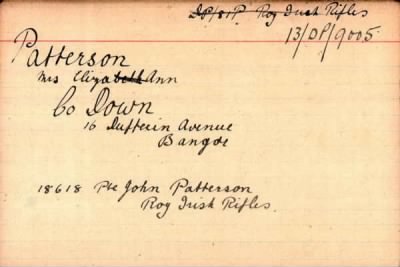 DP/81P. Roy Irish Rifles
13/DP/9005
Patterson
Mrs Elizabeth Ann
Co Down
16 Dufferin Avenue
Bangor
18618 Pte John Patterson
Roy Irish Rifles.